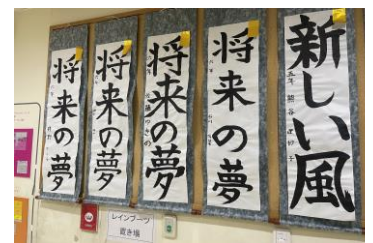 将来の夢
将来の夢
将来の夢
将来の夢
新しい風
レインブーツ
置き場